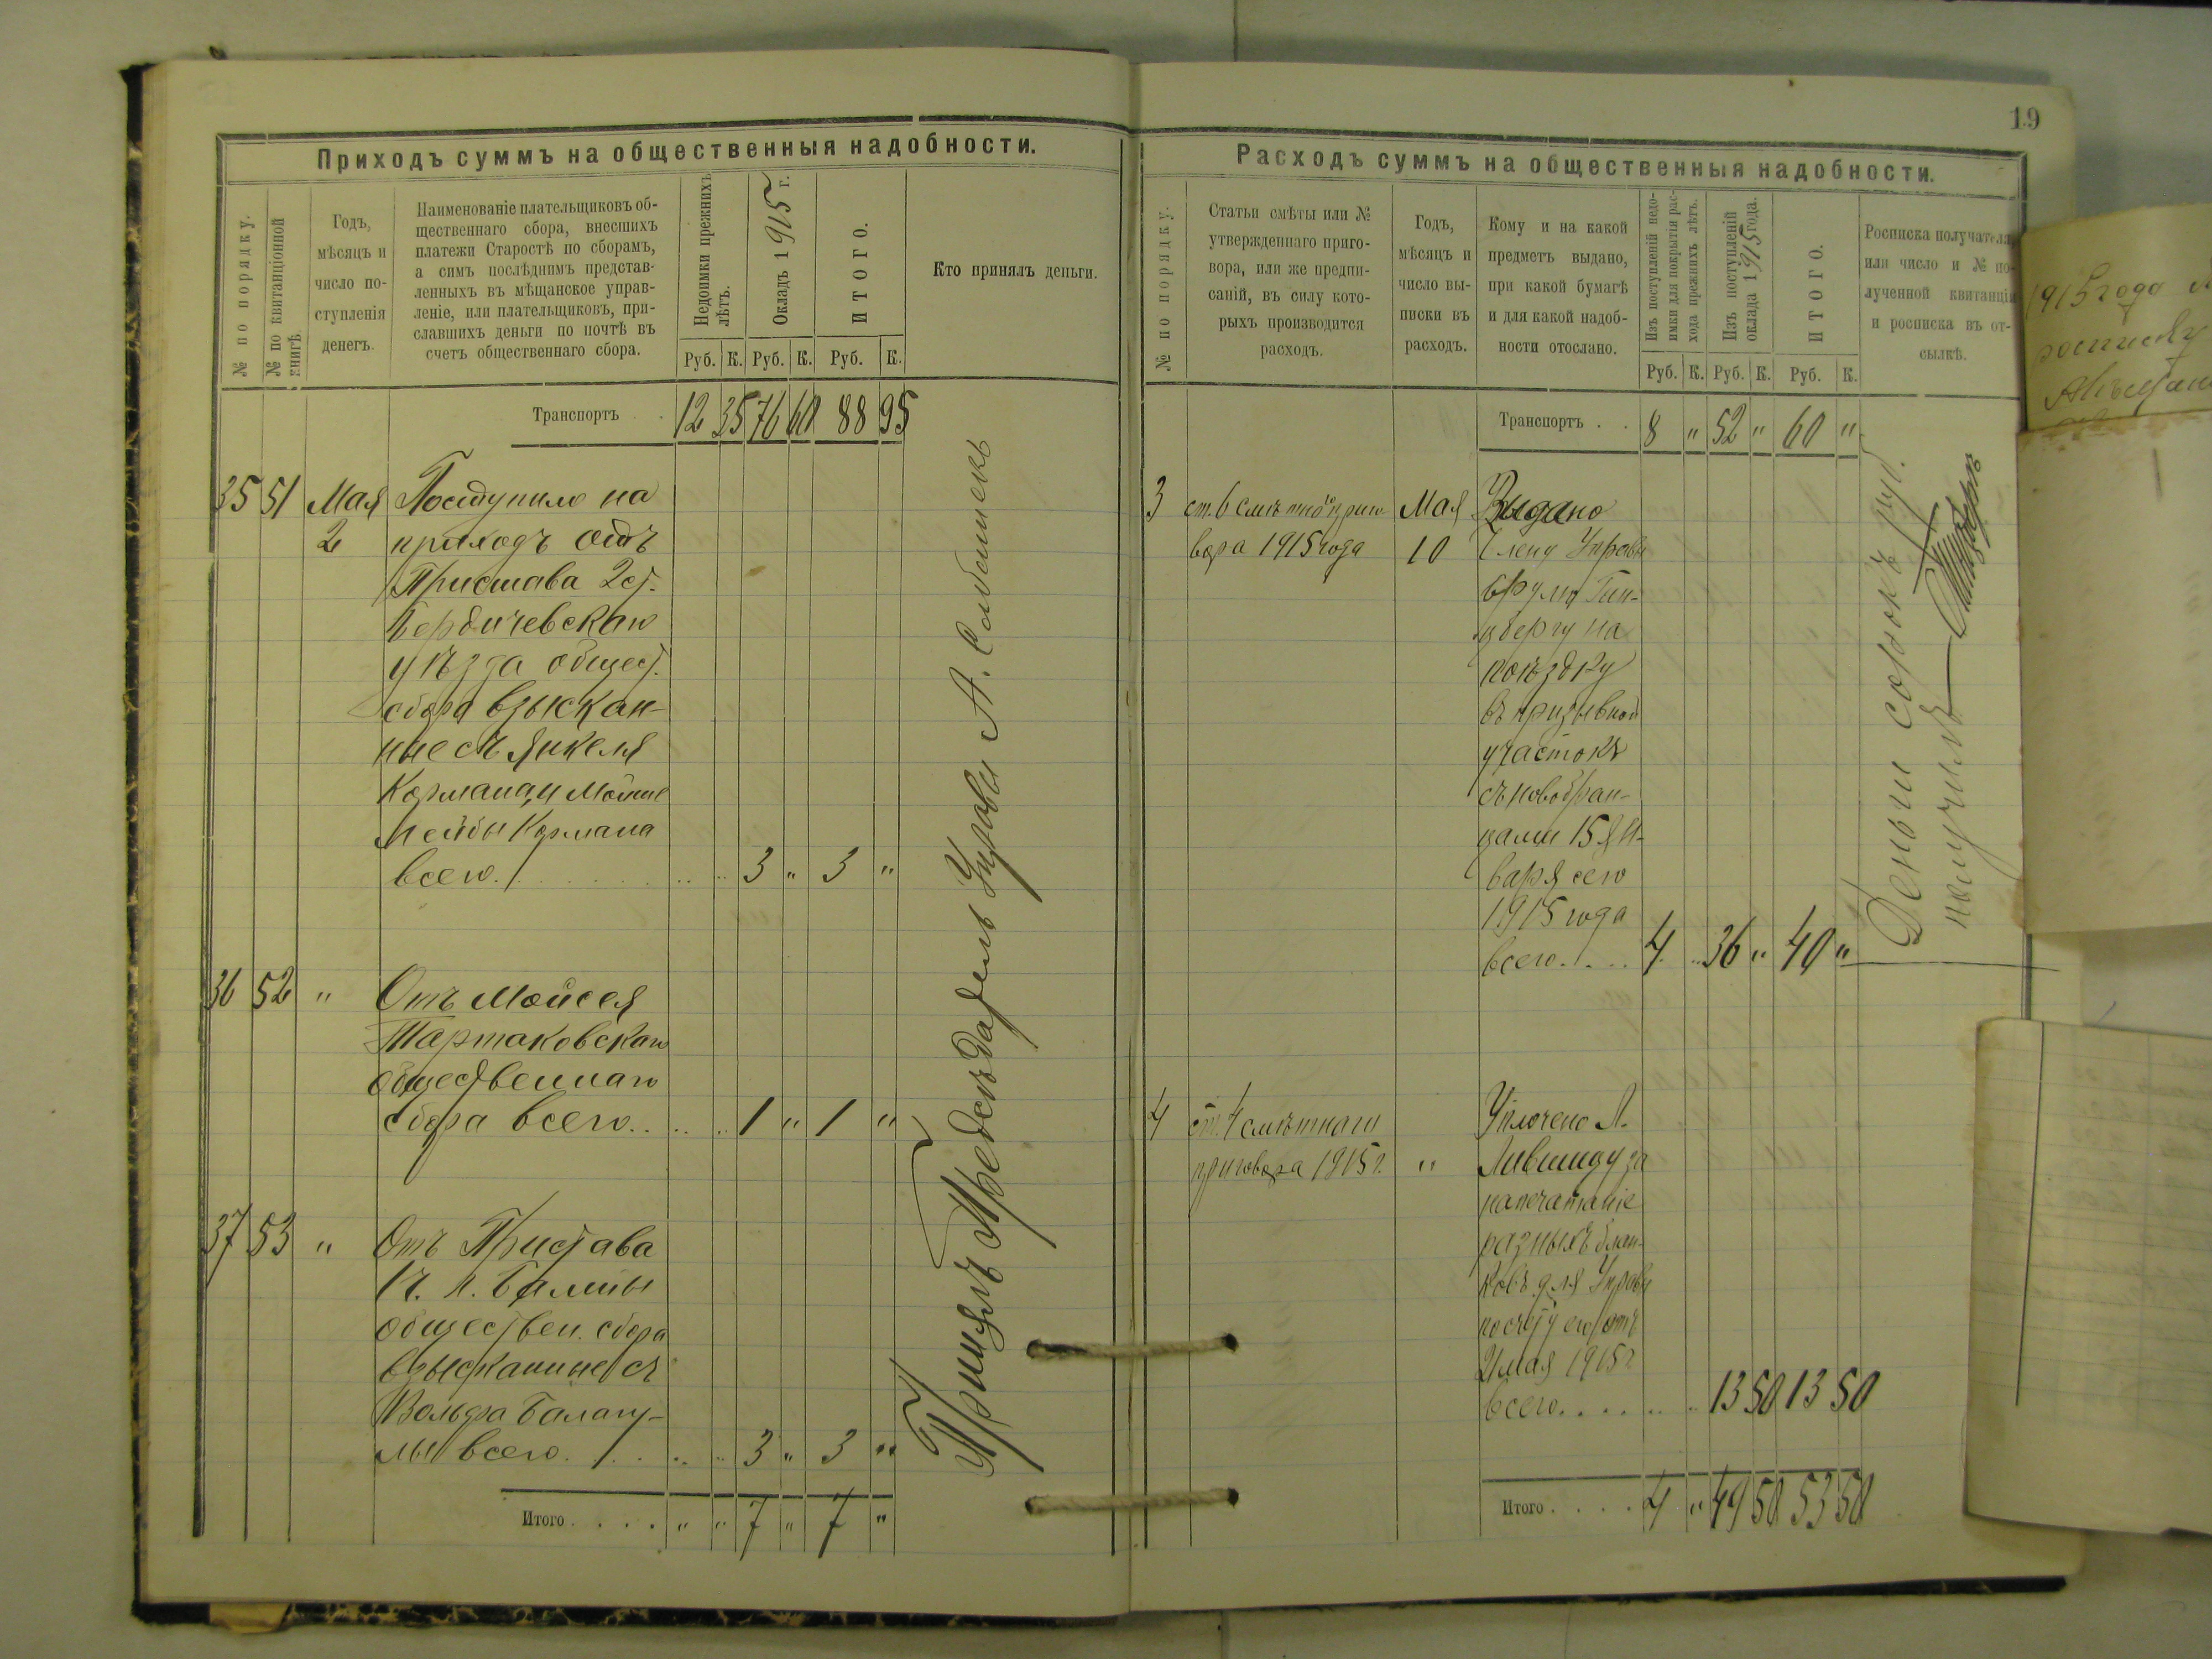 19
Приходъ суммъ на общественныя надобности.
№ по порядку.
№ по квитанціонной книгѣ.
Годъ,
мѣсяцъ и
число по-
ступленія
денегъ.
Наименованіе плательщиковъ об-
щественнаго сбора, внесшихъ
платежи Старостѣ по сборамъ,
а симъ послѣднимъ представ-
ленныхъ въ мѣщанское управ-
леніе, или плательщиковъ, при-
славшихъ деньги по почтѣ въ
счетъ общественнаго сбора.
Недоимки прежнихъ
лѣтъ.
Окладъ 1915 г.
ИТОГО.
Кто принялъ деньги.
Руб. К. Руб. К. Руб. К.
Транспортъ . . 12 35 76 60 88 95
35 51 Мая Поступило на
2 приходъ отъ
Пристава 2 ст.
Бердичевскаго
уѣзда общест.
сбора взыскан-
ные съ Янкеля
Кормана и Мошко
Лейбы Кормана
всего . . . 3 " 3 "
36 52 " Отъ Мойсея
Тартаковскаго
общественнаго
сбора всего . . . 1 " 1 "
37 53 " Отъ Пристава
г. Балты
обществен. сбора
взысканные съ
Вольфа Балагу-
лы всего . . . 3 " 3 "
Итого . . . . " " 7 " 7 "
Принялъ Предсѣдатель Управы А.
Расходъ суммъ на общественныя надобности.
№ по порядку.
Статьи смѣты или №
утвержденнаго приго-
вора, или же предпи-
саній, въ силу кото-
рыхъ производится
расходъ.
Годъ,
мѣсяцъ и
число вы-
писки въ
расходъ.
Кому и на какой
предметъ выдано,
при какой бумагѣ
и для какой надоб-
ности отослано.
Изъ поступленій недо-
имки для покрытія рас-
хода прежнихъ лѣтъ.
Изъ поступленій
оклада 1915 года.
ИТОГО.
Росписка получателя
или число и № по-
лученной квитанціи
и росписка въ от-
сылкѣ.
Руб. К. Руб. К. Руб. К.
Транспортъ . . 8 " 52 " 60 "
3 ст. 6 смѣтнаго приго- Мая Выдано
вора 1915 года 10 Члену Управы
Срулю Гин-
цбергу на
поѣздку
въ призывной
участокъ
съ новобран-
цами 15 Ян-
варя сего
1915 года
всего . . . 4 " 36 " 40 "
Деньги сорокъ руб.
получилъ
4 ст. 4 смѣтнаго Уплочено Л.
приговора 1915 г. " Лившицу за
напечатаніе
разныхъ блан-
ковъ для Управы
по счету его отъ
2 мая 1915 г.
всего . . . . 13 50 13 50
Итого . . . . 4 " 49 50 53 50
1915 года
росписку